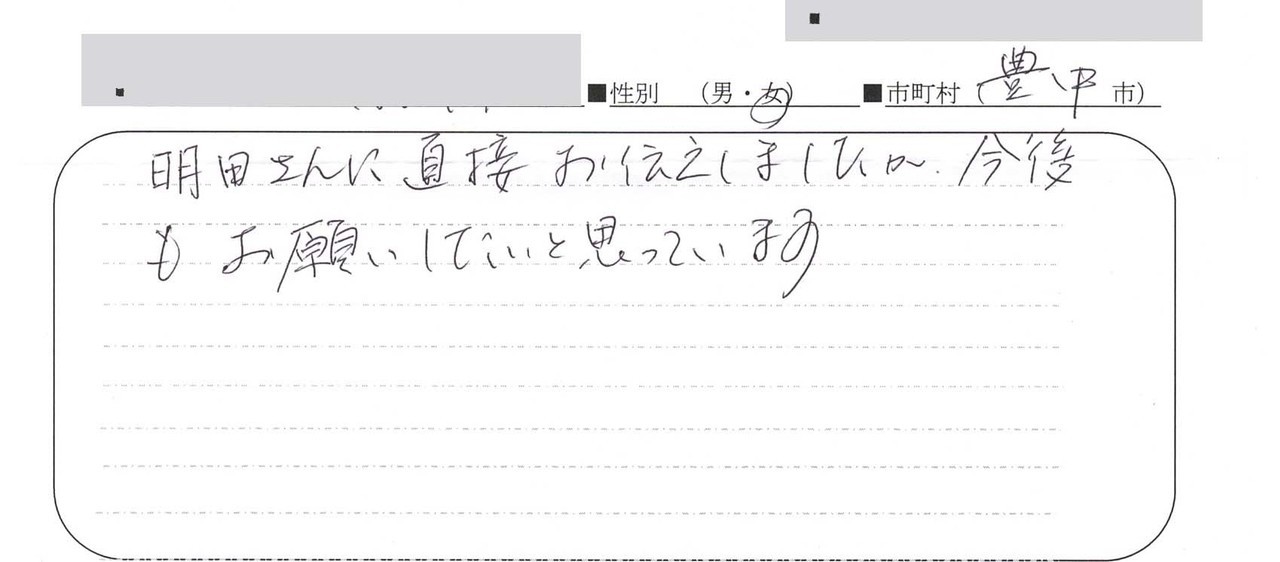 ■性別 (男・女) ■市町村 (豊中 市)
明田さんに直接お伝えしましたが、今後
もお願いしたいと思っています